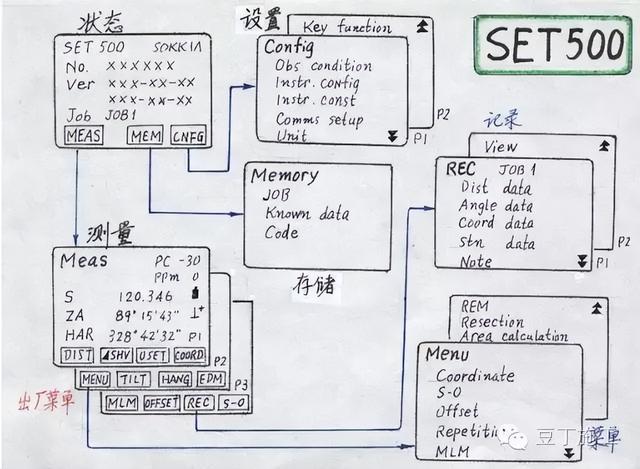 状态
SET 500 SOKKIA
No. ××××××
Ver ×××-××-××
×××-××-××
Job JOB1
MEAS MEM CNFG
设置
Key function
P2
Config
Obs condition
Instr. config
Instr. const
Comms setup
Unit
P1
SET500
Memory
JOB
Known data
Code
存储
记录
View
P2
REC JOB 1
Dist data
Angle data
Coord data
Stn data
Note
P1
测量
Meas PC -30
PPm 0
S 120.346
ZA 89°15'43"
HAR 328°42'32" P1
DIST ◢SHV 0SET COORD
P2
MENU TILT HANG EDM
P3
MLM OFFSET REC S-O
出厂菜单
REM
Resection
Area calculation
Menu
Coordinate
S-O
Offset
MLM
菜单
豆丁